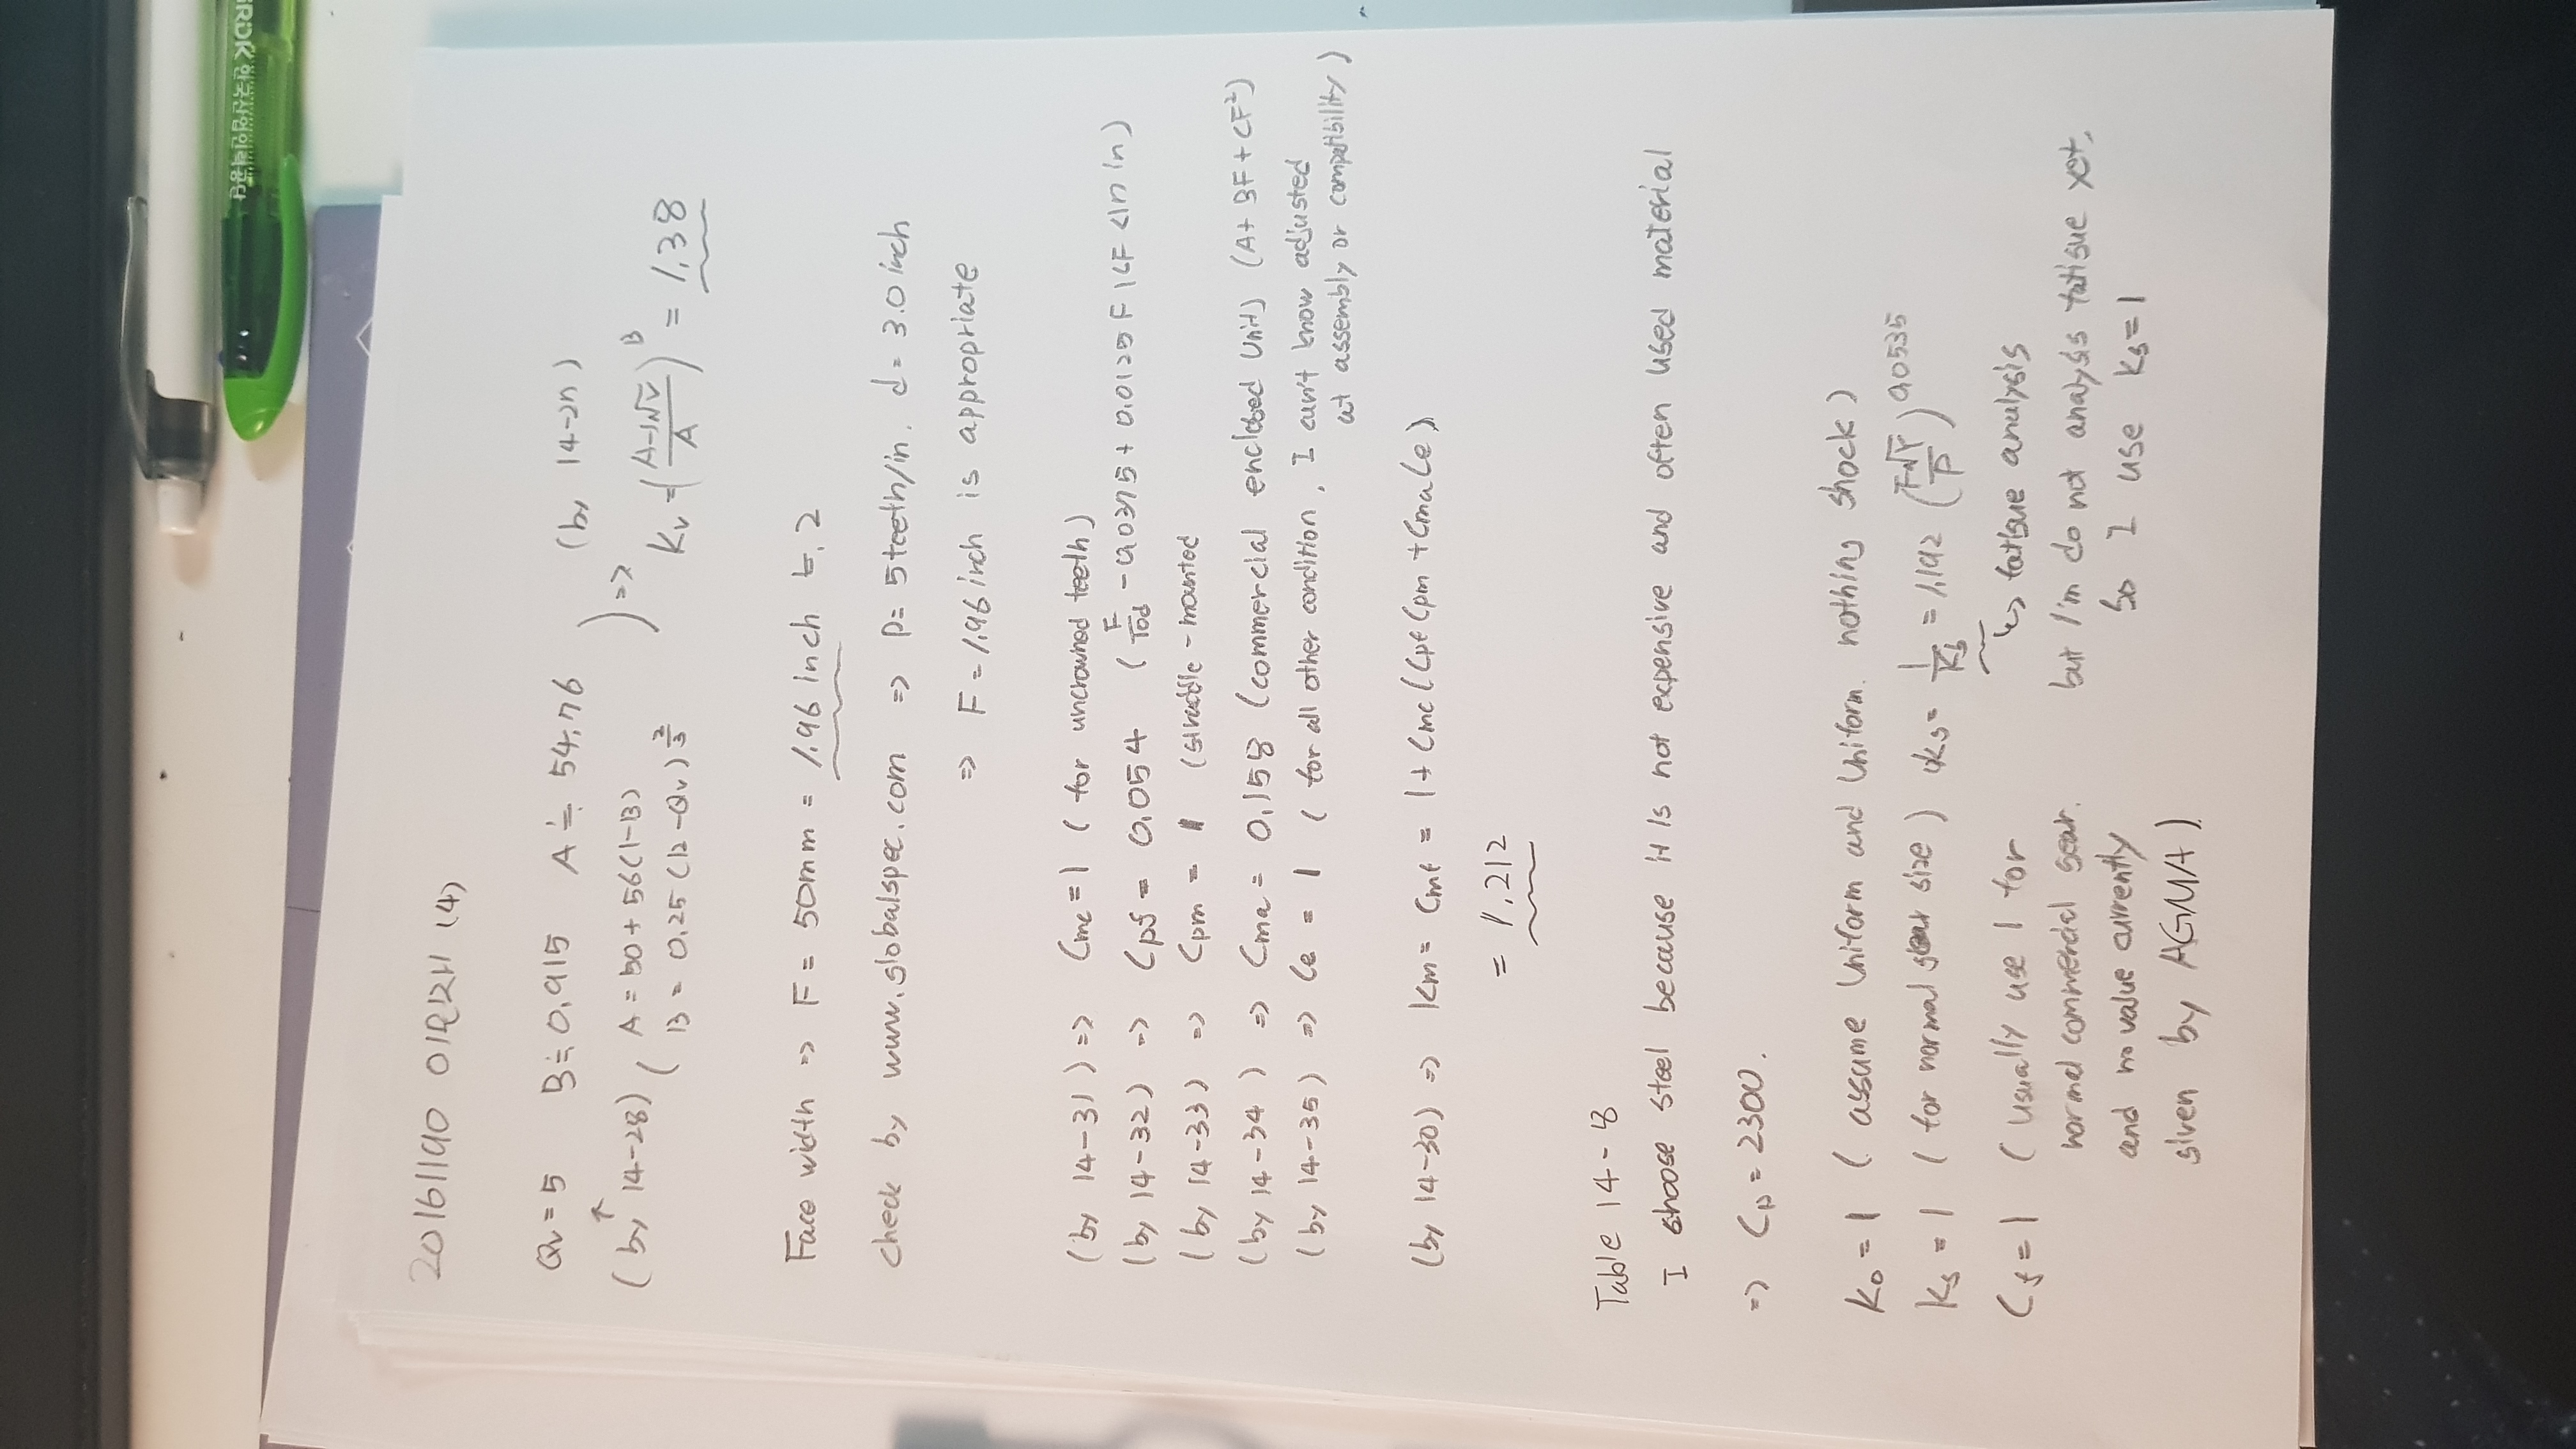 20161190 이민재 (4)
Qv = 5 B ≒ 0.915 A ≒ 54.76 (by 14-27)
(by 14-28) ( A = 50 + 56(1-B) ) =>
B = 0.25 (12-Qv)^{2/3} Kv = ((A+√V)/A)^B = 1.38
Face width => F = 50mm = 1.96 inch ≒ 2
check by www.globalspec.com => P= 5 teeth/in. d= 3.0 inch
=> F = 1.96 inch is appropriate
(by 14-31) => Cmc = 1 ( for uncrowned teeth)
(by 14-32) => Cpf = 0.054 (F/10d - 0.0375 + 0.0125 F 1<F<17 in)
(by 14-33) => Cpm = 1 (straddle - mounted
(by 14-34 ) => Cma = 0.158 (commercial enclosed unit) (A+ BF + CF²)
(by 14-35) => Ce = 1 ( for all other condition, I can't know adjusted
at assembly or compatibility )
(by 14-30) => Km = Cmf = 1 + Cmc (Cpf Cpm + Cma Ce)
= 1.212
Table 14 - 8
I choose steel because it is not expensive and often used material
=> Cp = 2300.
Ko = 1 ( assume Uniform and Uniform. nothing shock )
Ks = 1 ( for normal gear size ) Ks = 1/Kb = 1.192 (F√Y/P)^0.0535
↳ fatigue analysis
Cf = 1 ( usually use 1 for
normal commercial gear.
and no value currently
given by AGMA ).
but I'm do not analysis fatigue yet,
so I use Ks = 1
KRDK 한국산업인력공단